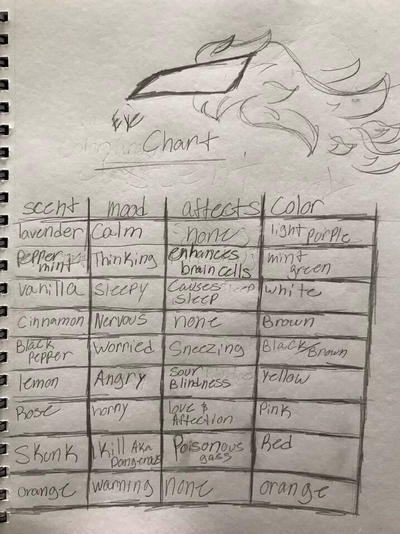 Eye
Chart
scent mood affects Color
lavender Calm none light purple
Pepper mint Thinking enhances braincells mint green
vanilla sleepy Causes sleep white
Cinnamon Nervous none Brown
Black Pepper Worried Sneezing Black/Brown
lemon Angry sour Blindness Yellow
Rose horny love & Affection Pink
Skunk Kill AKA Dangerous Poisonous gass Red
orange warning none orange